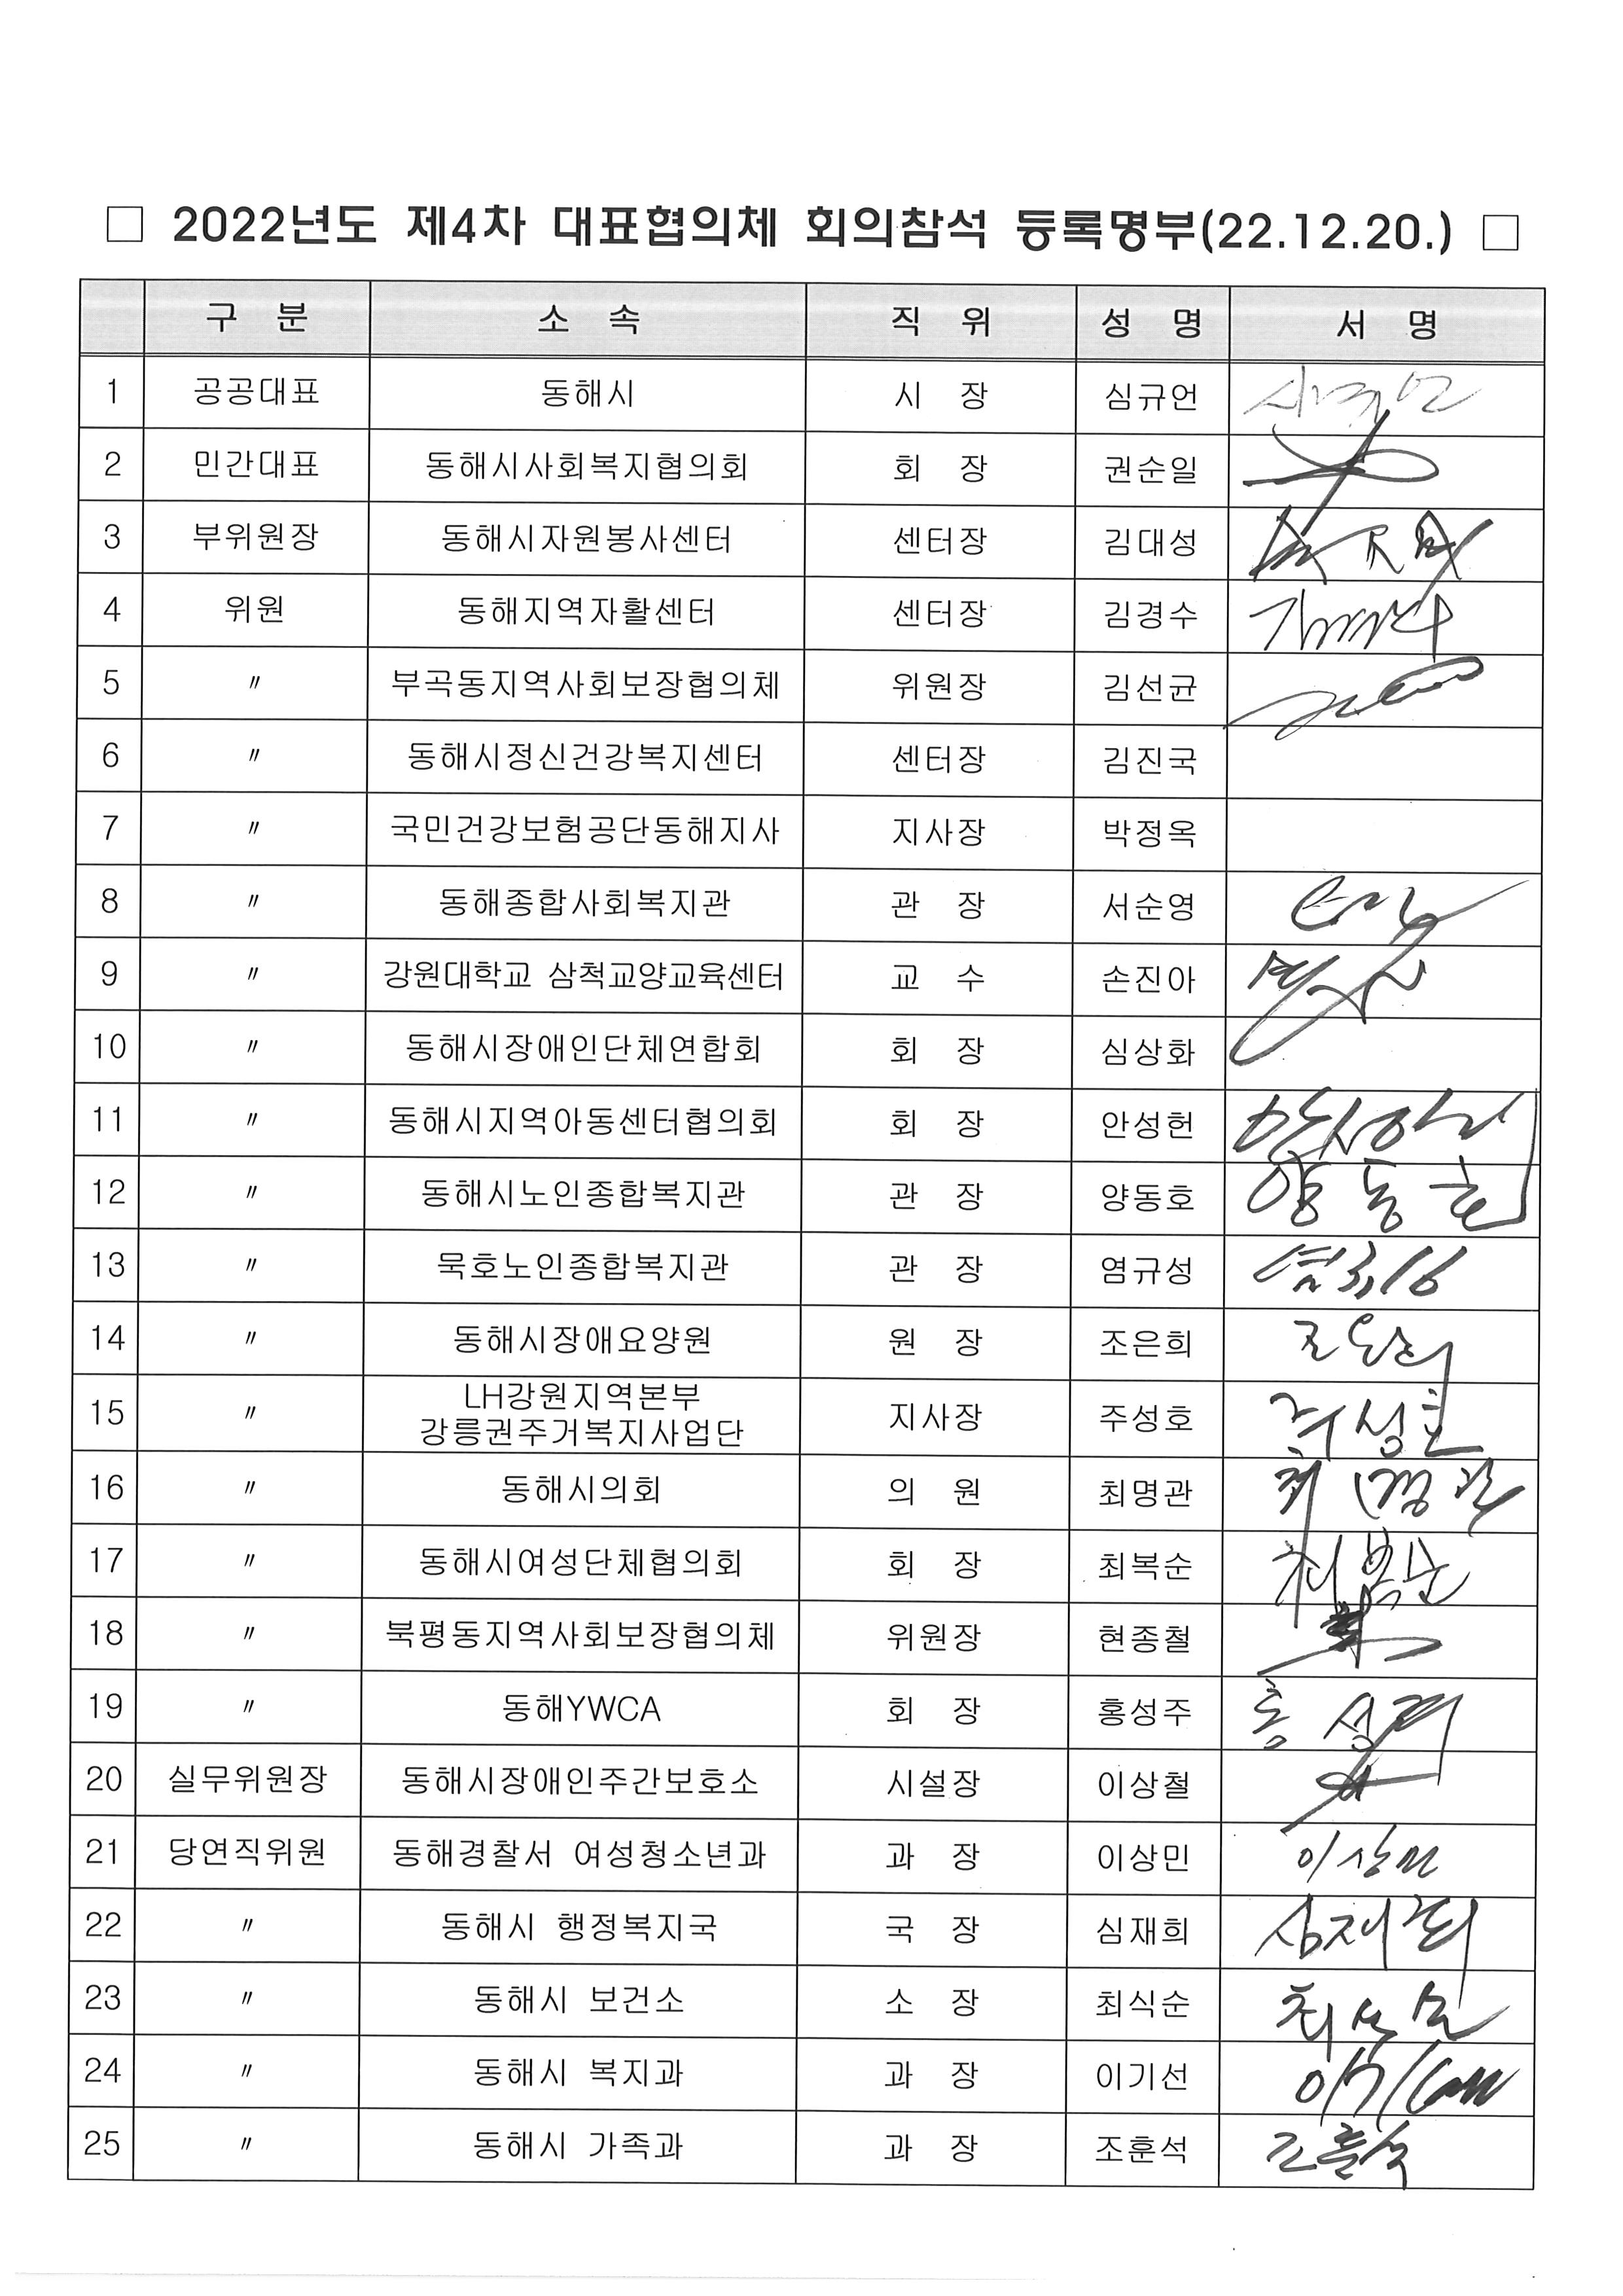 □ 2022년도 제4차 대표협의체 회의참석 등록명부(22.12.20.) □
구 분 소 속 직 위 성 명 서 명
1 공공대표 동해시 시 장 심규언
2 민간대표 동해시사회복지협의회 회 장 권순일
3 부위원장 동해시자원봉사센터 센터장 김대성
4 위원 동해지역자활센터 센터장 김경수
5 〃 부곡동지역사회보장협의체 위원장 김선균
6 〃 동해시정신건강복지센터 센터장 김진국
7 〃 국민건강보험공단동해지사 지사장 박정옥
8 〃 동해종합사회복지관 관 장 서순영
9 〃 강원대학교 삼척교양교육센터 교 수 손진아
10 〃 동해시장애인단체연합회 회 장 심상화
11 〃 동해시지역아동센터협의회 회 장 안성헌
12 〃 동해시노인종합복지관 관 장 양동호 양동호
13 〃 묵호노인종합복지관 관 장 염규성 염규성
14 〃 동해시장애요양원 원 장 조은희 조은희
15 〃 LH강원지역본부
강릉권주거복지사업단 지사장 주성호 주성호
16 〃 동해시의회 의 원 최명관
17 〃 동해시여성단체협의회 회 장 최복순 최복순
18 〃 북평동지역사회보장협의체 위원장 현종철
19 〃 동해YWCA 회 장 홍성주 홍성주
20 실무위원장 동해시장애인주간보호소 시설장 이상철
21 당연직위원 동해경찰서 여성청소년과 과 장 이상민 이상민
22 〃 동해시 행정복지국 국 장 심재희 심재희
23 〃 동해시 보건소 소 장 최식순 최식순
24 〃 동해시 복지과 과 장 이기선
25 〃 동해시 가족과 과 장 조훈석 조훈석